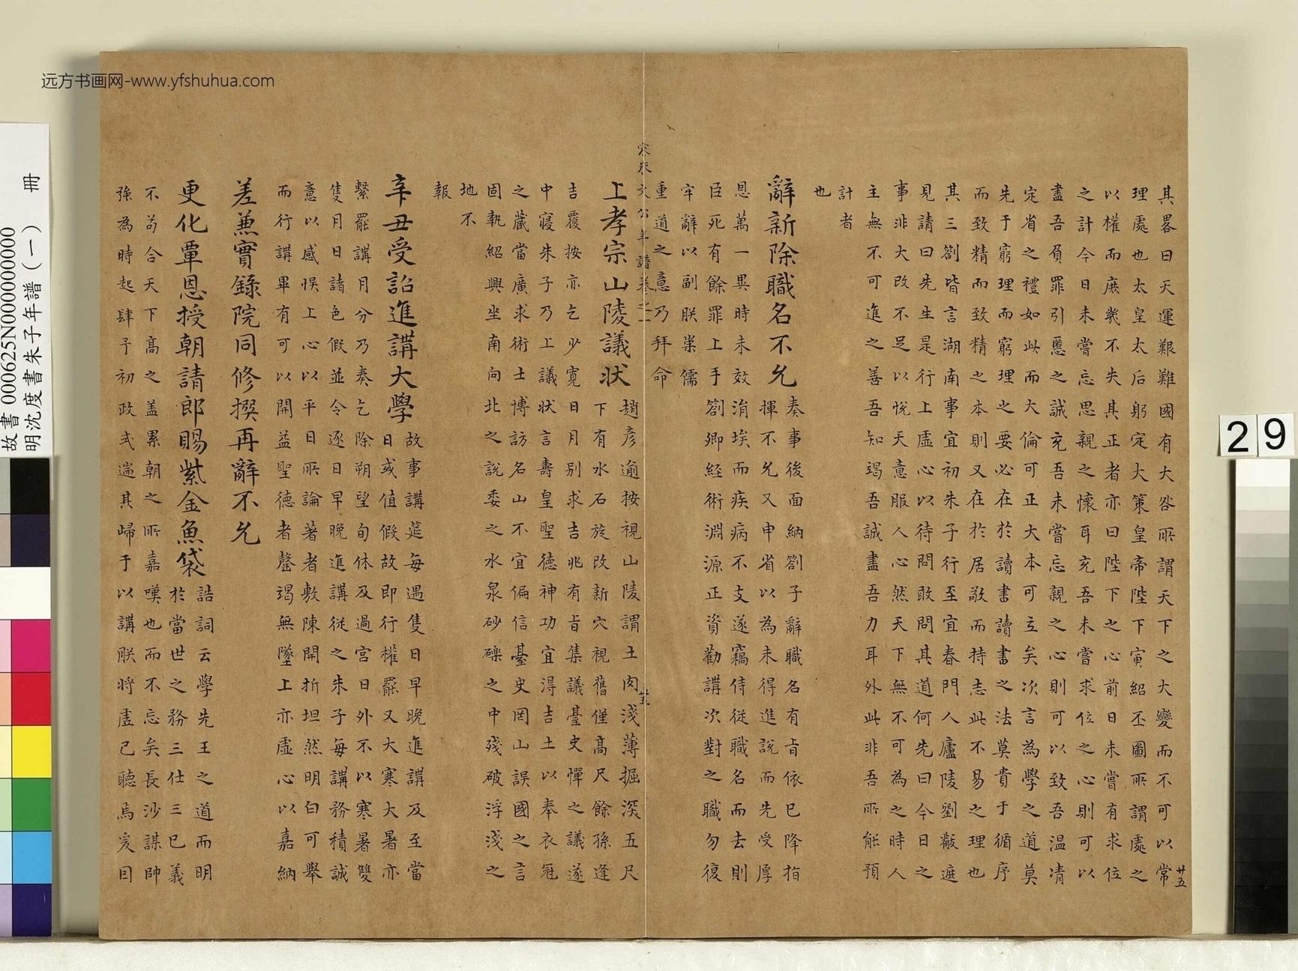 远方书画网-www.yfshuhua.com
故書 000625N000000000 冊
明沈度書朱子年譜(一)
29
其畧曰天運艱難國有大咎所謂天下之大變而不可以常
理處也太皇太后躬定大策皇帝陛下寅紹丕圖所謂處之
以權而庶幾不失其正者亦曰陛下之心前日未嘗有求位
之計今日未嘗忘思親之懷耳充吾未嘗求位之心則可以
盡吾負罪引慝之誠充吾未嘗忘親之心則可以致吾温凊
定省之禮如此而大倫可正大本可立矣次言為學之道莫
先于窮理而窮理之要必在於讀書讀書之法莫貴于循序
而致精而致精之本則又在於居敬而持志此不易之理也
其三劄皆言湖南事宜初朱子行至宜春門人廬陵劉黻遮
見請曰先生是行上虛心以待問敢問其道何先曰今日之
事非大改不足以悅天意服人心然天下無不可為之時人
主無不可進之善吾知竭吾誠盡吾力耳外此非吾所能預
計者
也
辭新除職名不允 奏事後面納劄子辭職名有旨依已降指
揮不允又申省以為未得進說而先受厚
恩萬一異時未效涓埃而疾病不支遂竊侍從職名而去則
臣死有餘罪上手劄卿經術淵源正資勸講次對之職勿復
牢辭以副朕崇儒
重道之意乃拜命
宋朱文公年譜卷之二
上孝宗山陵議狀 趙彦逾按視山陵謂土肉淺薄掘深五尺
下有水石旋改新穴視舊僅髙尺餘孫逢
吉覆按亦乞少寛日月别求吉兆有旨集議臺史憚之議遂
中寢朱子乃上議狀言壽皇聖德神功宜淂吉土以奉衣冠
之藏當廣求術士博訪名山不宜偏信臺史罔山誤國之言
固執紹興坐南向北之說委之水泉砂礫之中殘破浮淺之
地不
報
辛丑受詔進講大學 故事講筵每遇隻日早晚進講及至當
日或值假故即行權罷又大寒大暑亦
繫罷講月分乃奏乞除朔望旬休及過宮日外不以寒暑雙
隻月日諸色假並令逐日早晚進講從之朱子每講務積誠
意以感悞上心以平日所論著者敷陳開析坦然明白可舉
而行講畢有可以開益聖德者罄竭無墜上亦虛心以嘉納
差兼實錄院同修撰再辭不允
更化覃恩授朝請郎賜紫金魚袋 誥詞云學先王之道而明
於當世之務三仕三已義
不苟合天下髙之盖累朝之所嘉嘆也而不忘矣長沙謀帥
強為時起肆予初政式遄其歸于以講朕將虛已聽焉爰因
廿五